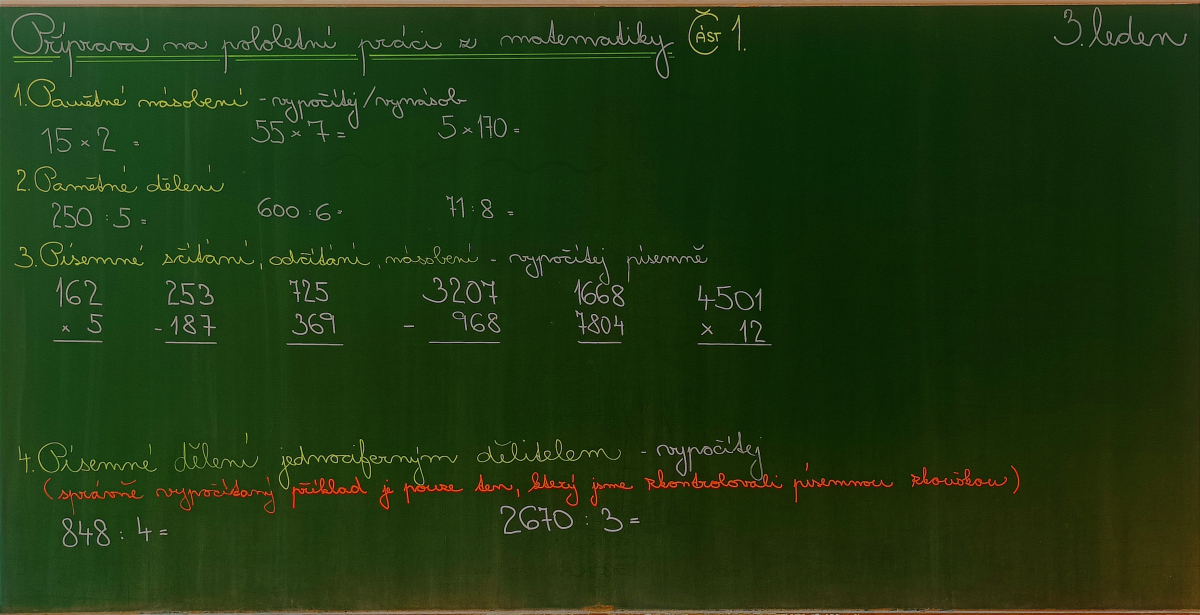 Příprava na pololetní práci z matematiky ČÁST 1. 3. leden
1. Pamětné násobení - vypočítej/vynásob
15 × 2 = 55 × 7 = 5 × 170 =
2. Pamětné dělení
250 : 5 = 600 : 6 = 71 : 8 =
3. Písemné sčítání, odčítání, násobení - vypočítej písemně
162 253 725 3207 1668 4501
× 5 - 187 369 - 968 7804 × 12
4. Písemné dělení jednociferným dělitelem - vypočítej
(správně vypočítaný příklad je pouze ten, který jsme zkontrolovali písemnou zkouškou)
848 : 4 = 2670 : 3 =